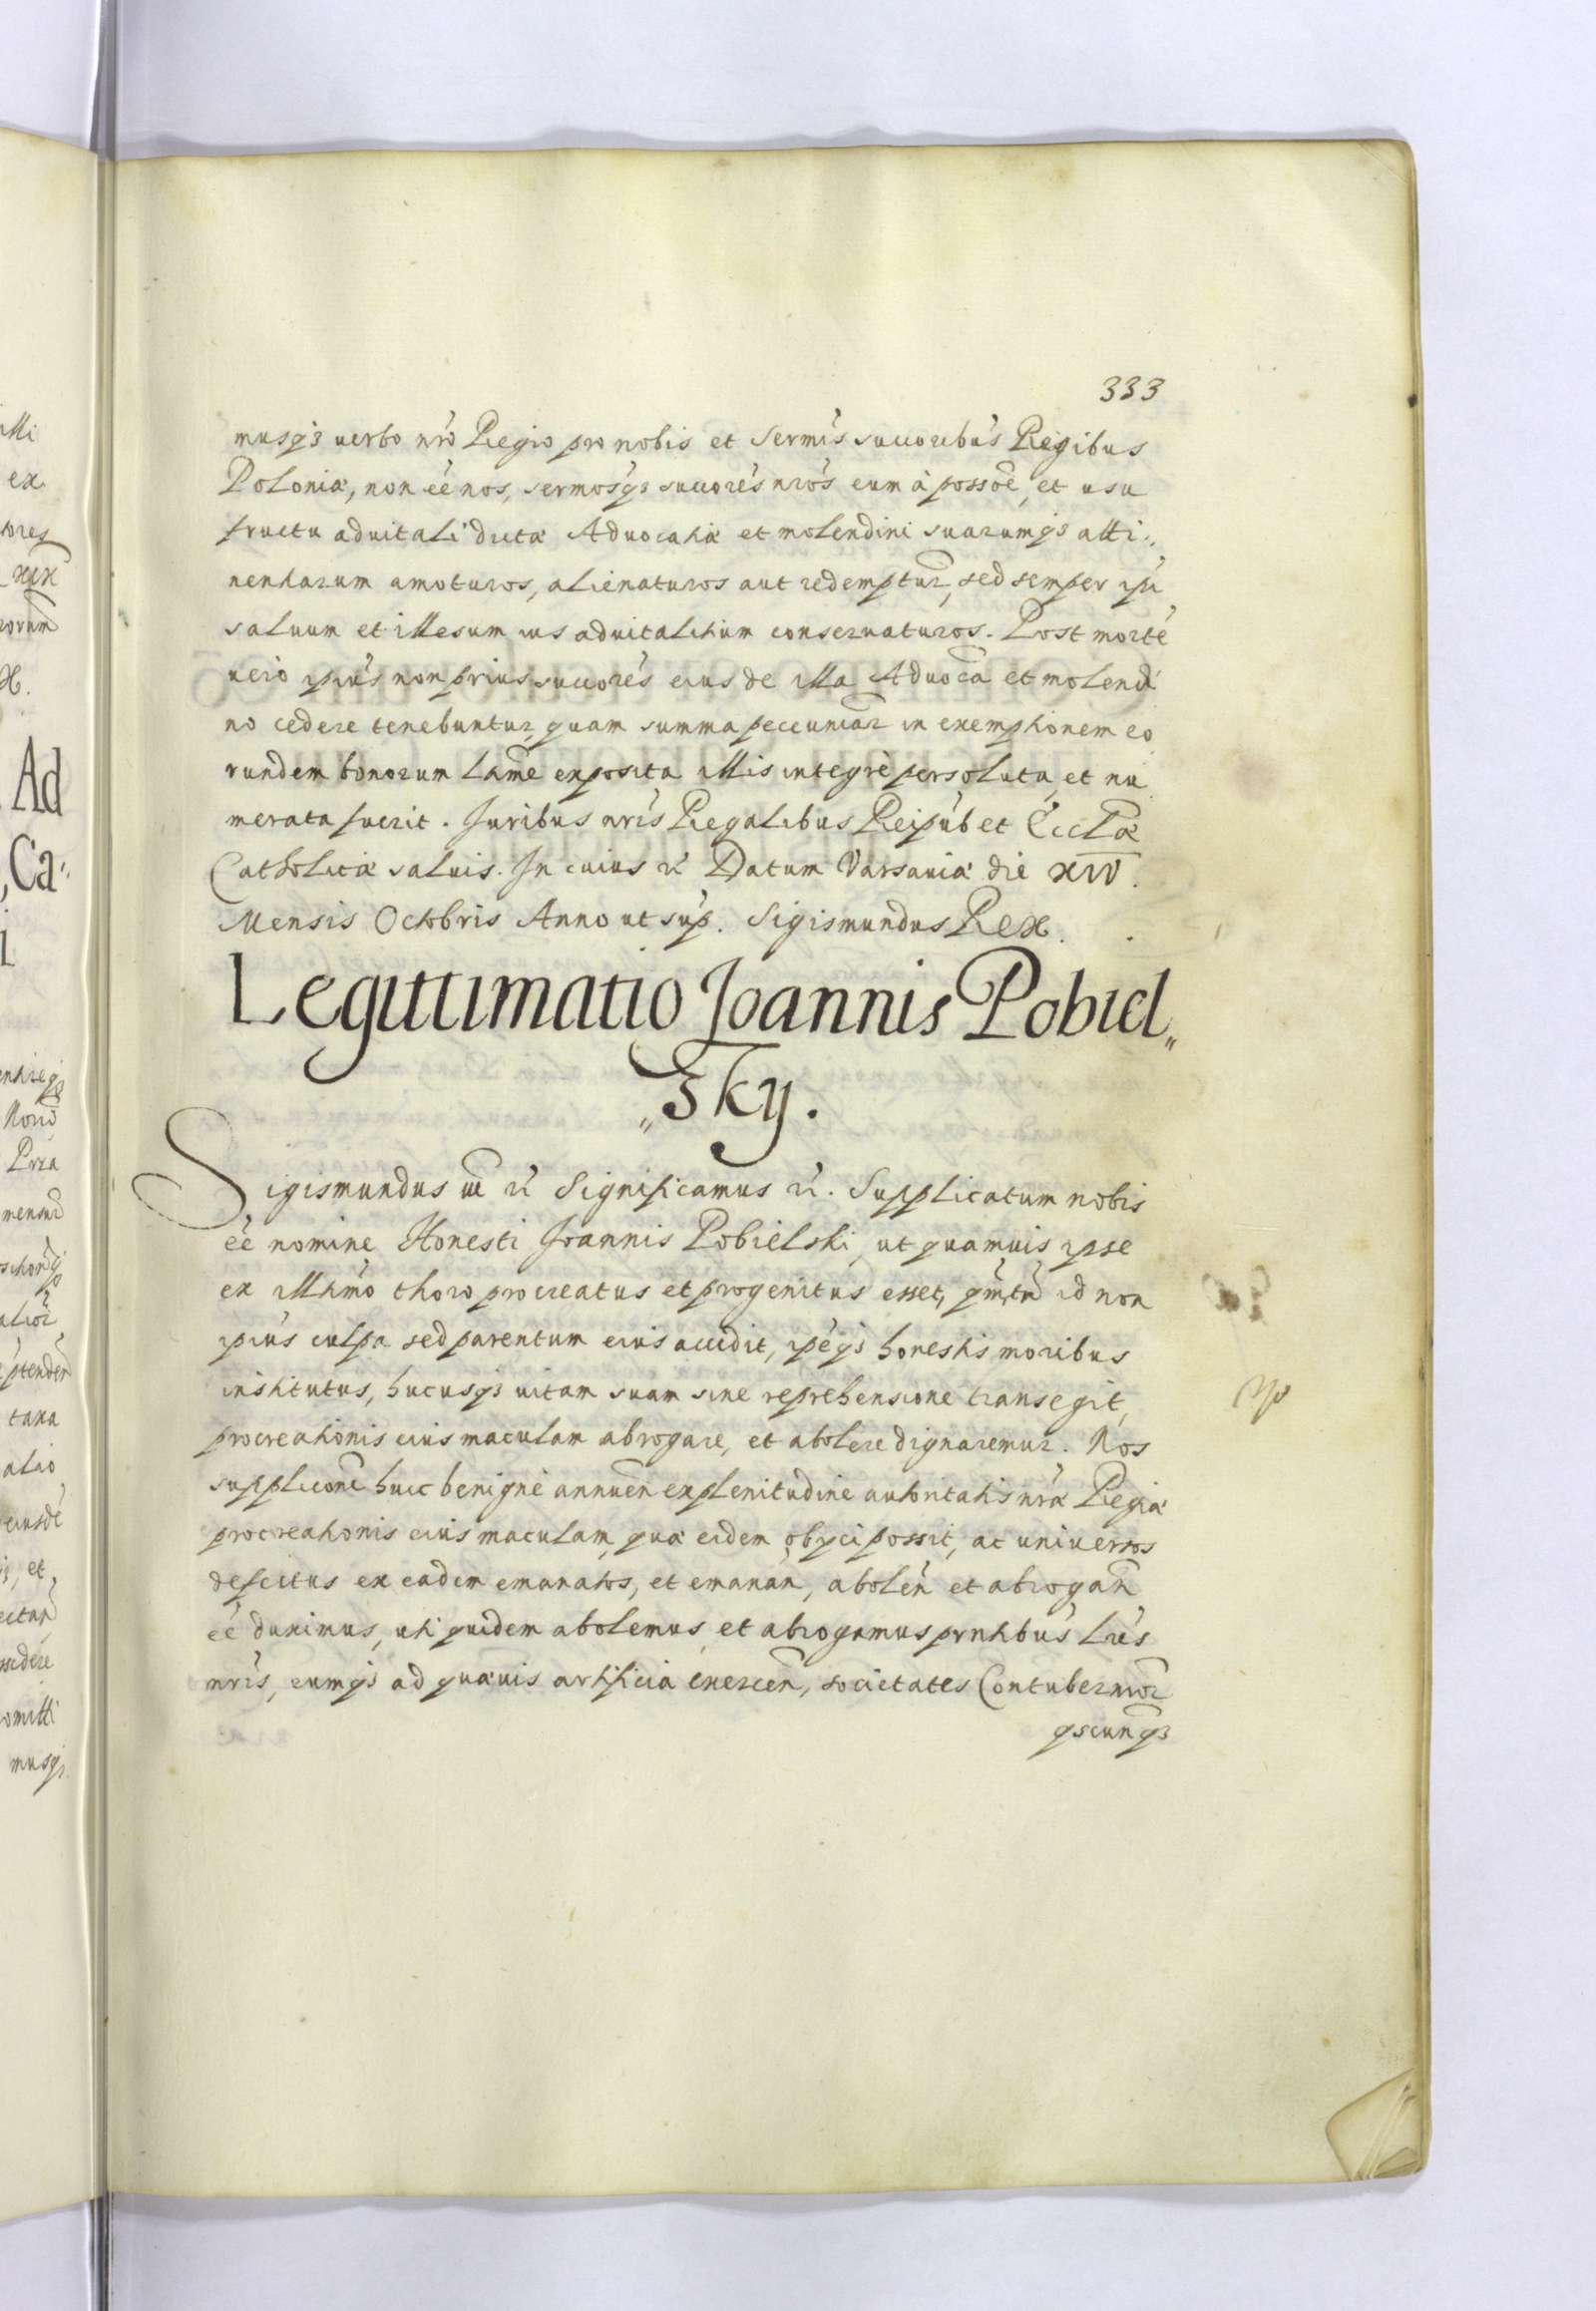 333
musq3 uerbo nro Regio pro nobis et Sermis succoribus Regibus
Poloniæ, non ee nos, sermosq3 succores nros eum à possoe, et usu
fructu aduitali dictæ Aduocatiæ et molendini suarumq3 atti„
nentiarum amoturos, alienaturos aut redempturos, sed semper ipi
saluum et illesum ius aduitalitium conseruaturos. Post morte
uero ipius non prius succores eius de illa Aduoca et molendi
no cedere tenebuntur, quam summa peccuniar in exemptionem eo
rundem bonorum lame exposita illis integrè persoluta, et nu
merata fuerit. Juribus nris Regalibus Reipub et Eccla
Catholicæ saluis. In cuius rei Datum Varsauiæ die XIV.
Mensis Octobris Anno ut sup. Sigismundus Rex.
Legittimatio Joannis Pobiel„
„sky.
Sigismundus III rc Significamus rc. Supplicatum nobis
ee nomine Honesti Joannis Pobielski, ut quamuis ipse
ex illtimo thoro procreatus et progenitus esset, qm tn id non
ipius culpa sed parentum eius accidit, ipeq3 honestis moribus
institutus, hucusq3 uitam suam sine reprehensione transegit,
procreationis eius maculam abrogare, et abolere dignaremur. Nos
supplicone huic benignè annuen ex plenitudine autoritatis nræ Regiæ
procreationis eius maculam, quæ eidem obyci possit, ac uniuersos
defectus ex eadem emanatos, et emanan, abolen et abrogan
ee duximus, uti quidem abolemus, et abrogamus pntibus lris
nris, eumq3 ad quæuis artificia exercen, societates Contubernior
qscunq3